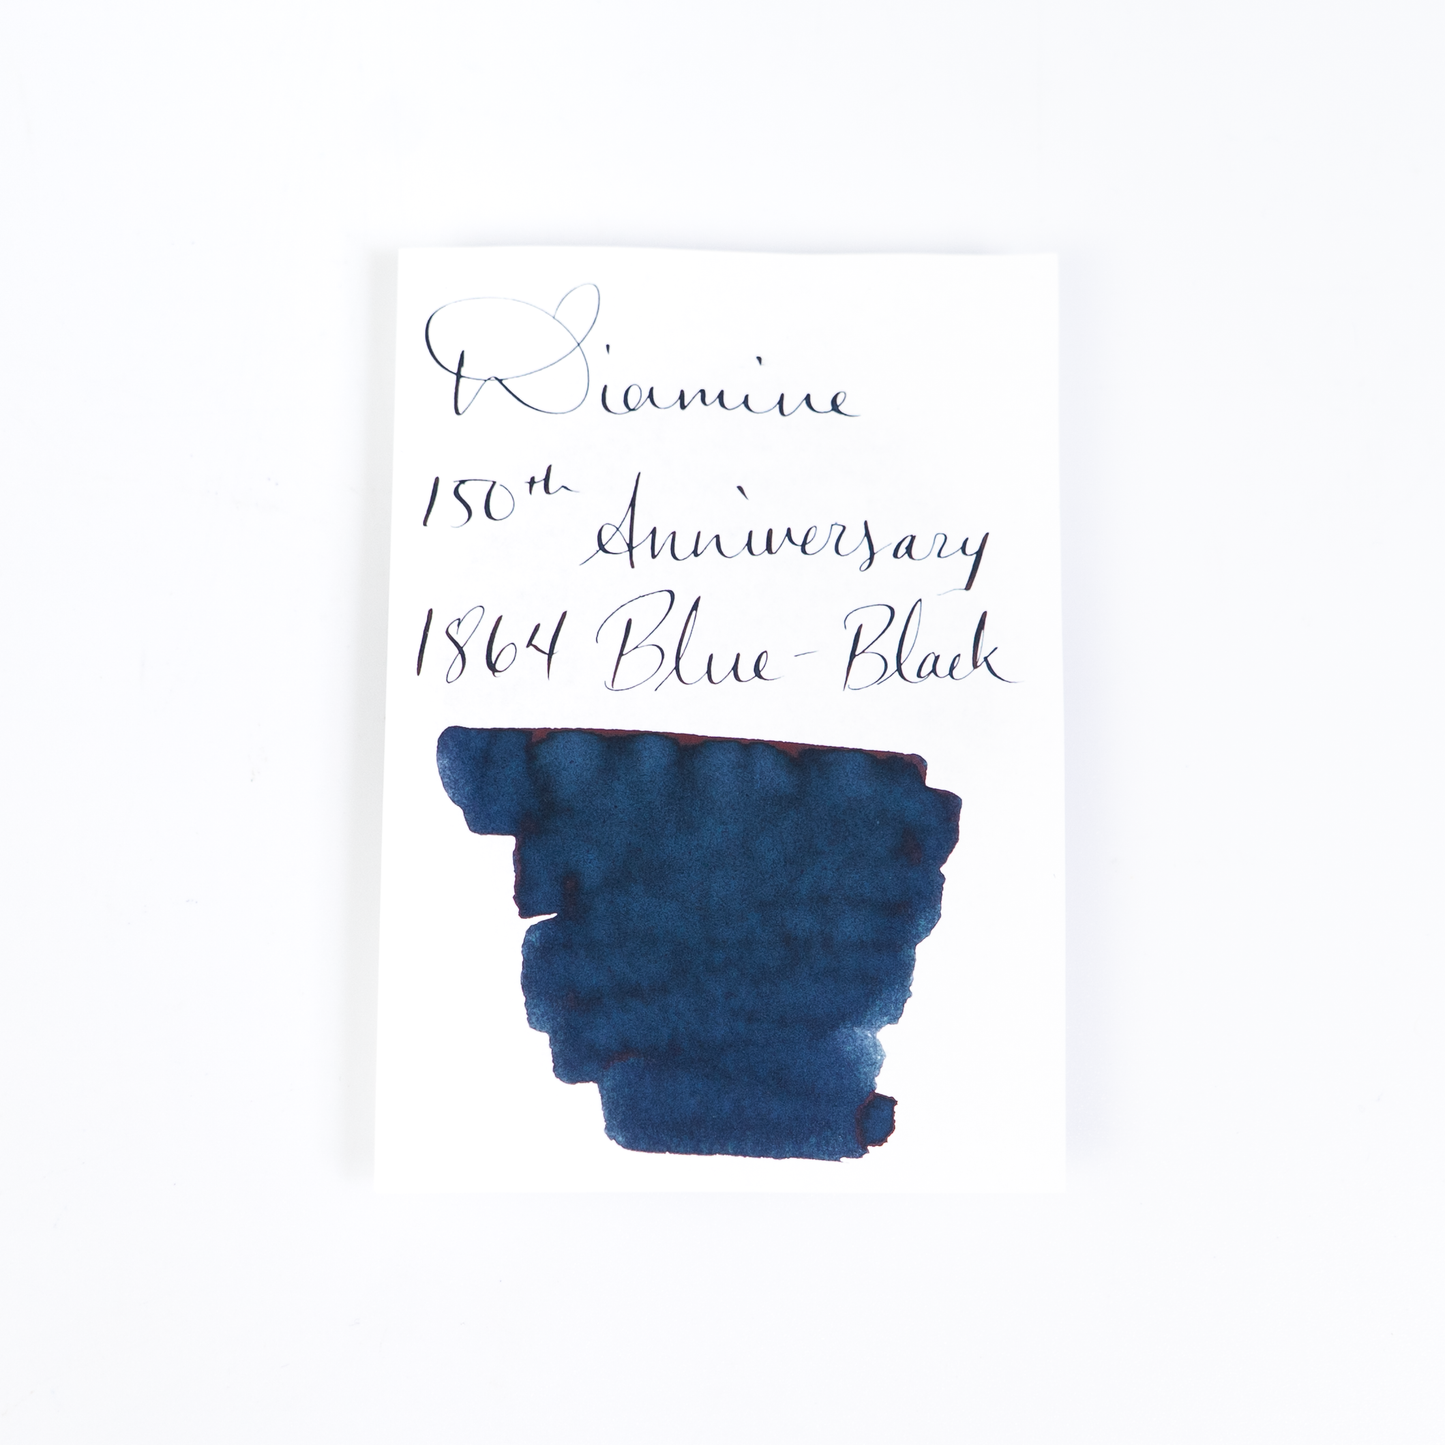 Diamine
150th Anniversary
1864 Blue-Black